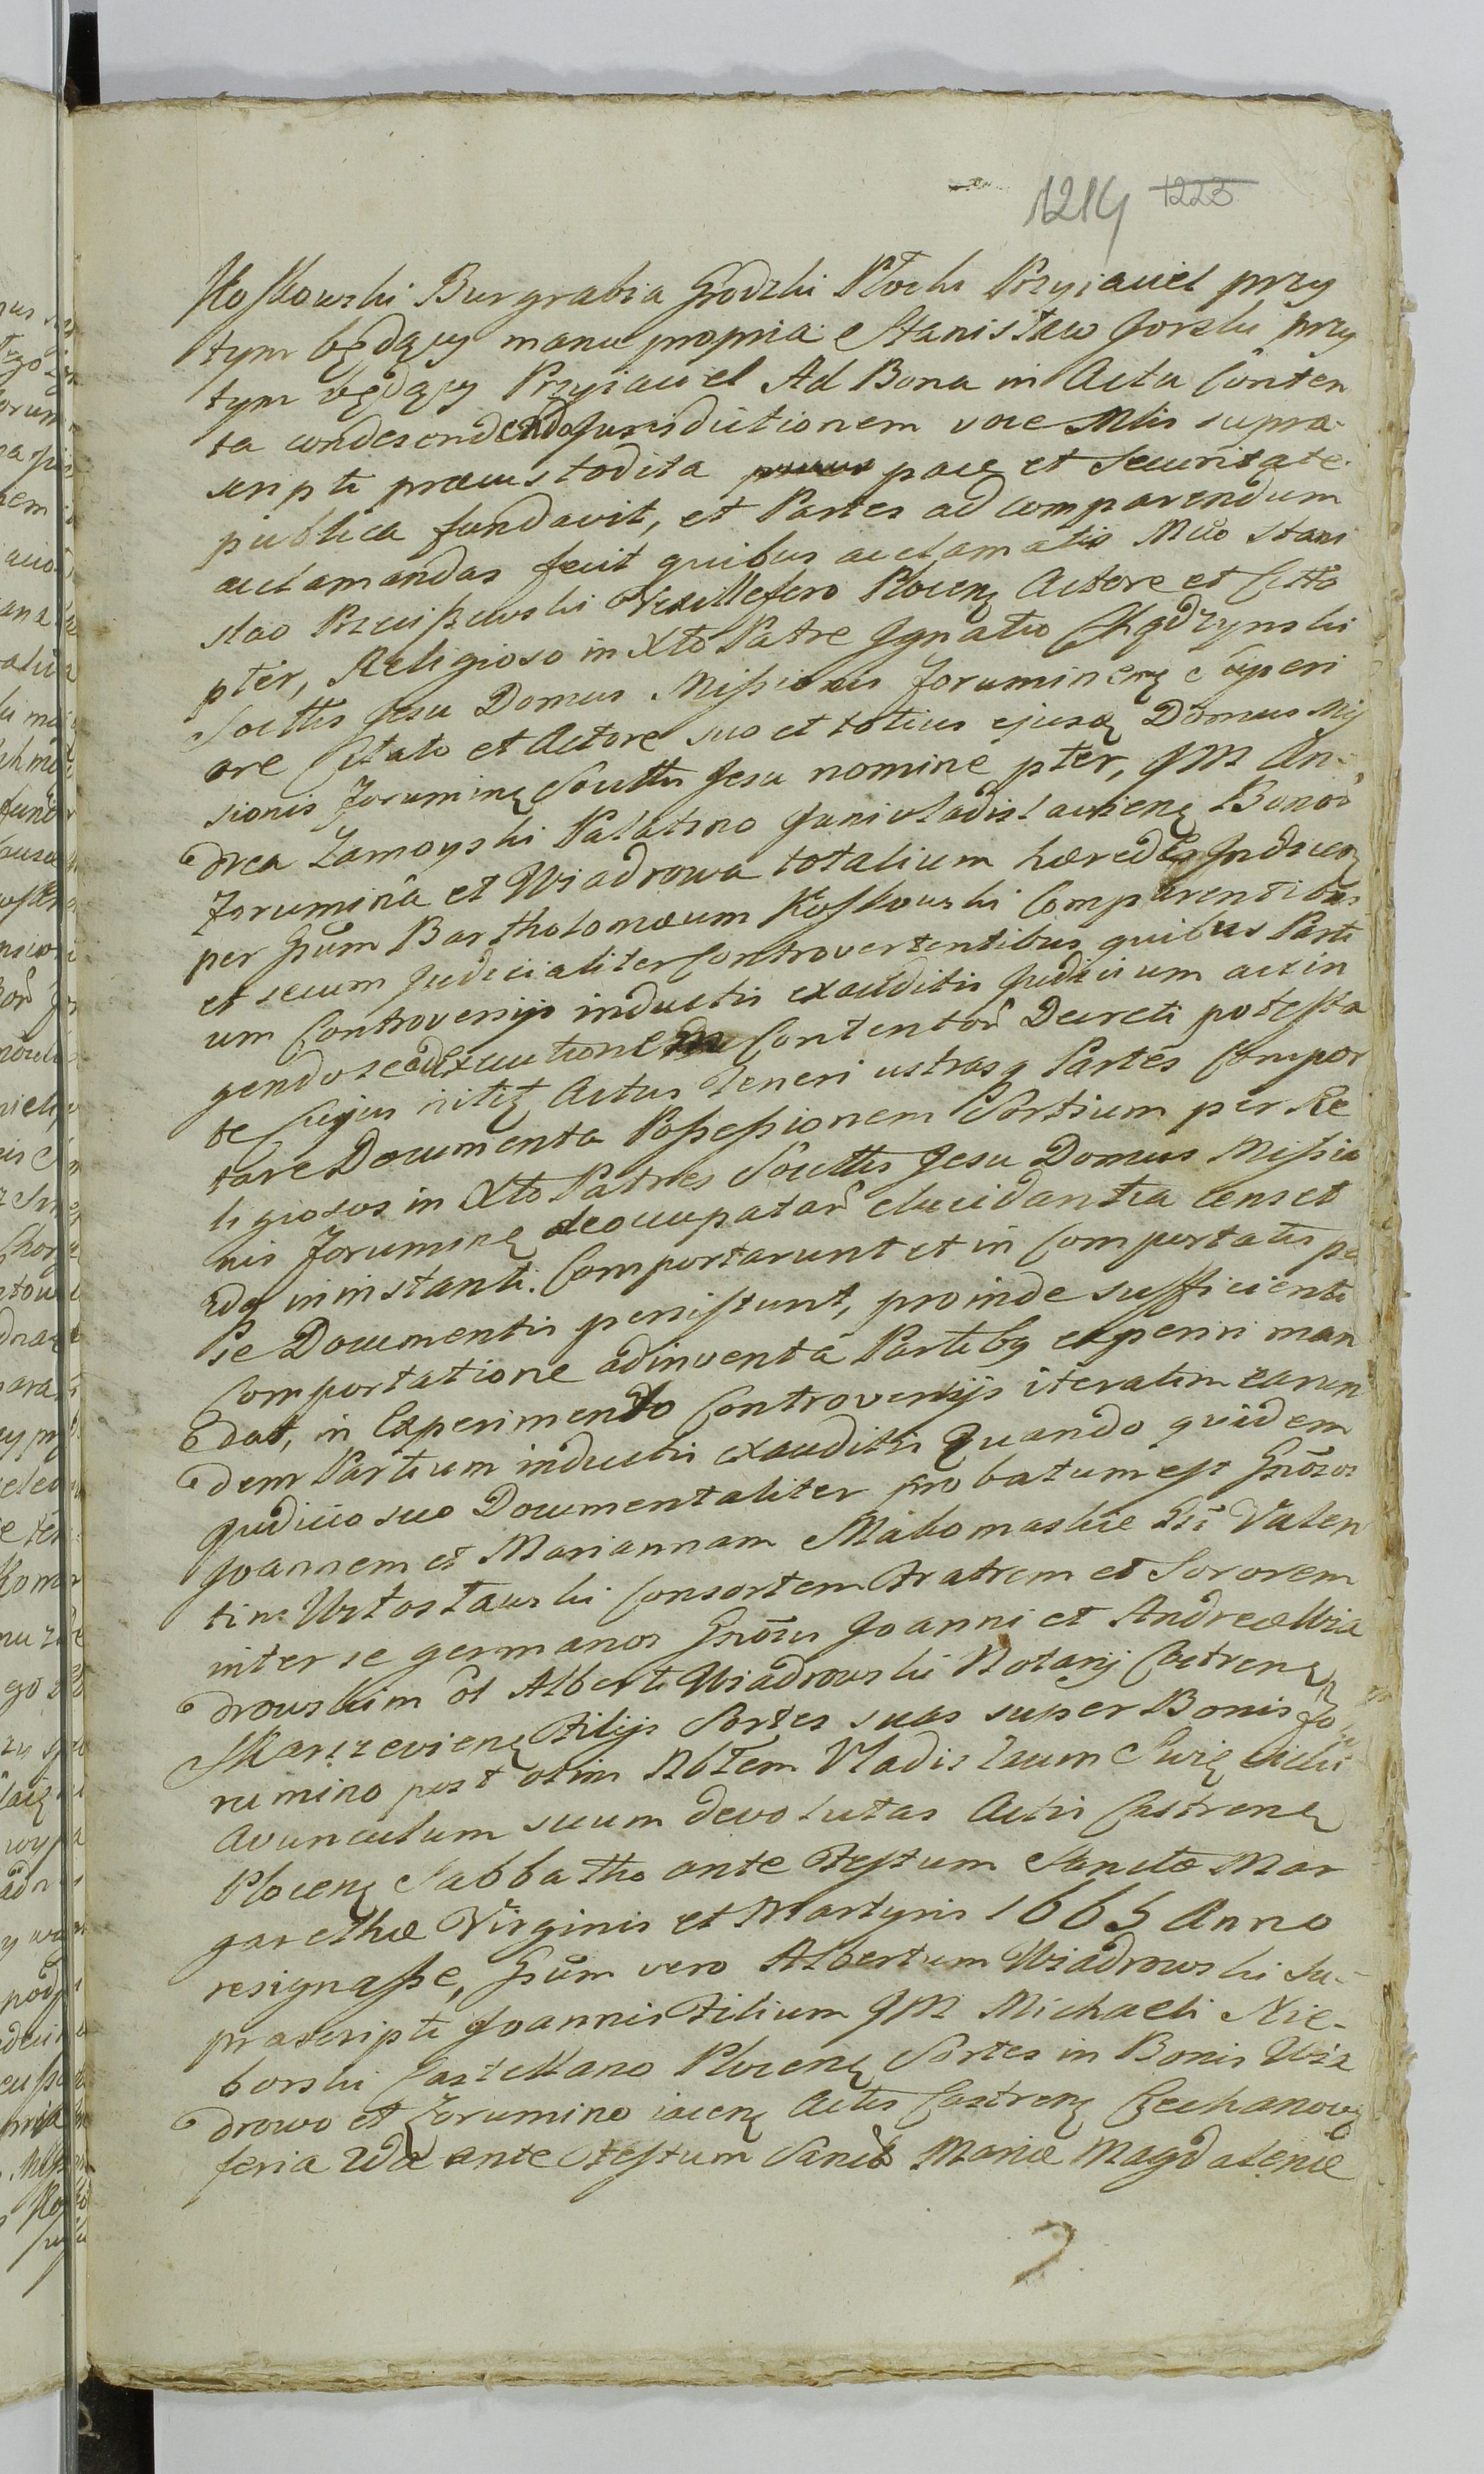 1214 1223
Kosskowski Burgrabia Grodzki Płocki Przyiaciel przy
tym będący manu propria Stanisław Gorski przy
tym będący Przyiaciel Ad Bona in Actu Conten
ta condescendendo Jurisdictionem voce Mlis supra-
scripti praecustodita pace et Securitate
publica fundavit, et Partes ad comparendum
acclamandas fecit quibus acclamatis Mco Stani
slao Przeciszewski Vexillefero Plocen Actore et Citto
pter, Religioso in Xto Patre Ignatio Chądzynski
Soctts Jesu Domus Missionis Zoruminen Superi
ore Citato et Actore suo et totius ejusq Domus Mis
sionis Zorumin Soctts Jesu nomine pter, JM An-
drea Zamoyski Palatino Junivladislavien Bonor
Zorumina et Wiadrowa totalium haerede Inducen
per Gsum Bartholomaeum Kosskowski Comparentibus
et secum Judicialiter Controvertentibus quibus Parti
um Controversijs inductis exauditis Judicium accin
gendo se ad Executionem Contentor Decreti potesta
te Cujus nitit Actus Teneri utrasq Partes Compor
tare Documenta Possessionem Sortium per Re
ligiosos in Xto Patres Soctts Jesu Domus Missio
nis Zorumin deoccupatar elucidantia censet
idq in instanti. Comportarunt et in Comportatis pe
se Documentis persistunt, proinde sufficienti
Comportatione adinventa Partibq experiri man
dat, in Experimento Controversijs iteratim earun
dem Partium inductis exauditis Quando quidem
Judicio suo Documentaliter probatum est Gnosos
Joannem et Mariannam Makomaskie Valen
tini Ustostawski Consortem Fratrem et Sororem
inter se germanos Gnosis Joanni et Andreae Wia
drowskim ol Alberti Wiadrowski Notarij Castren
Filijs Sortes suas super Bonis Zo
rumino post olim Nblem Vladislaum Swię cicki
Avunculum suum devolutas Actis Castren
Plocen Sabbatho ante Festum Sanctae Mar
garethae Virginis et Martyris 1665 Anno
resignasse, Gsum vero Albertum Wiadrowski Su-
prascripti Joannis Filium JM Michaeli Nie-
borski Castellano Plocen Sortes in Bonis Wia
drowo et Zorumino iacen Actis Castren Czechanov
feria 2da ante Festum Sancta Mariae Magdalenae